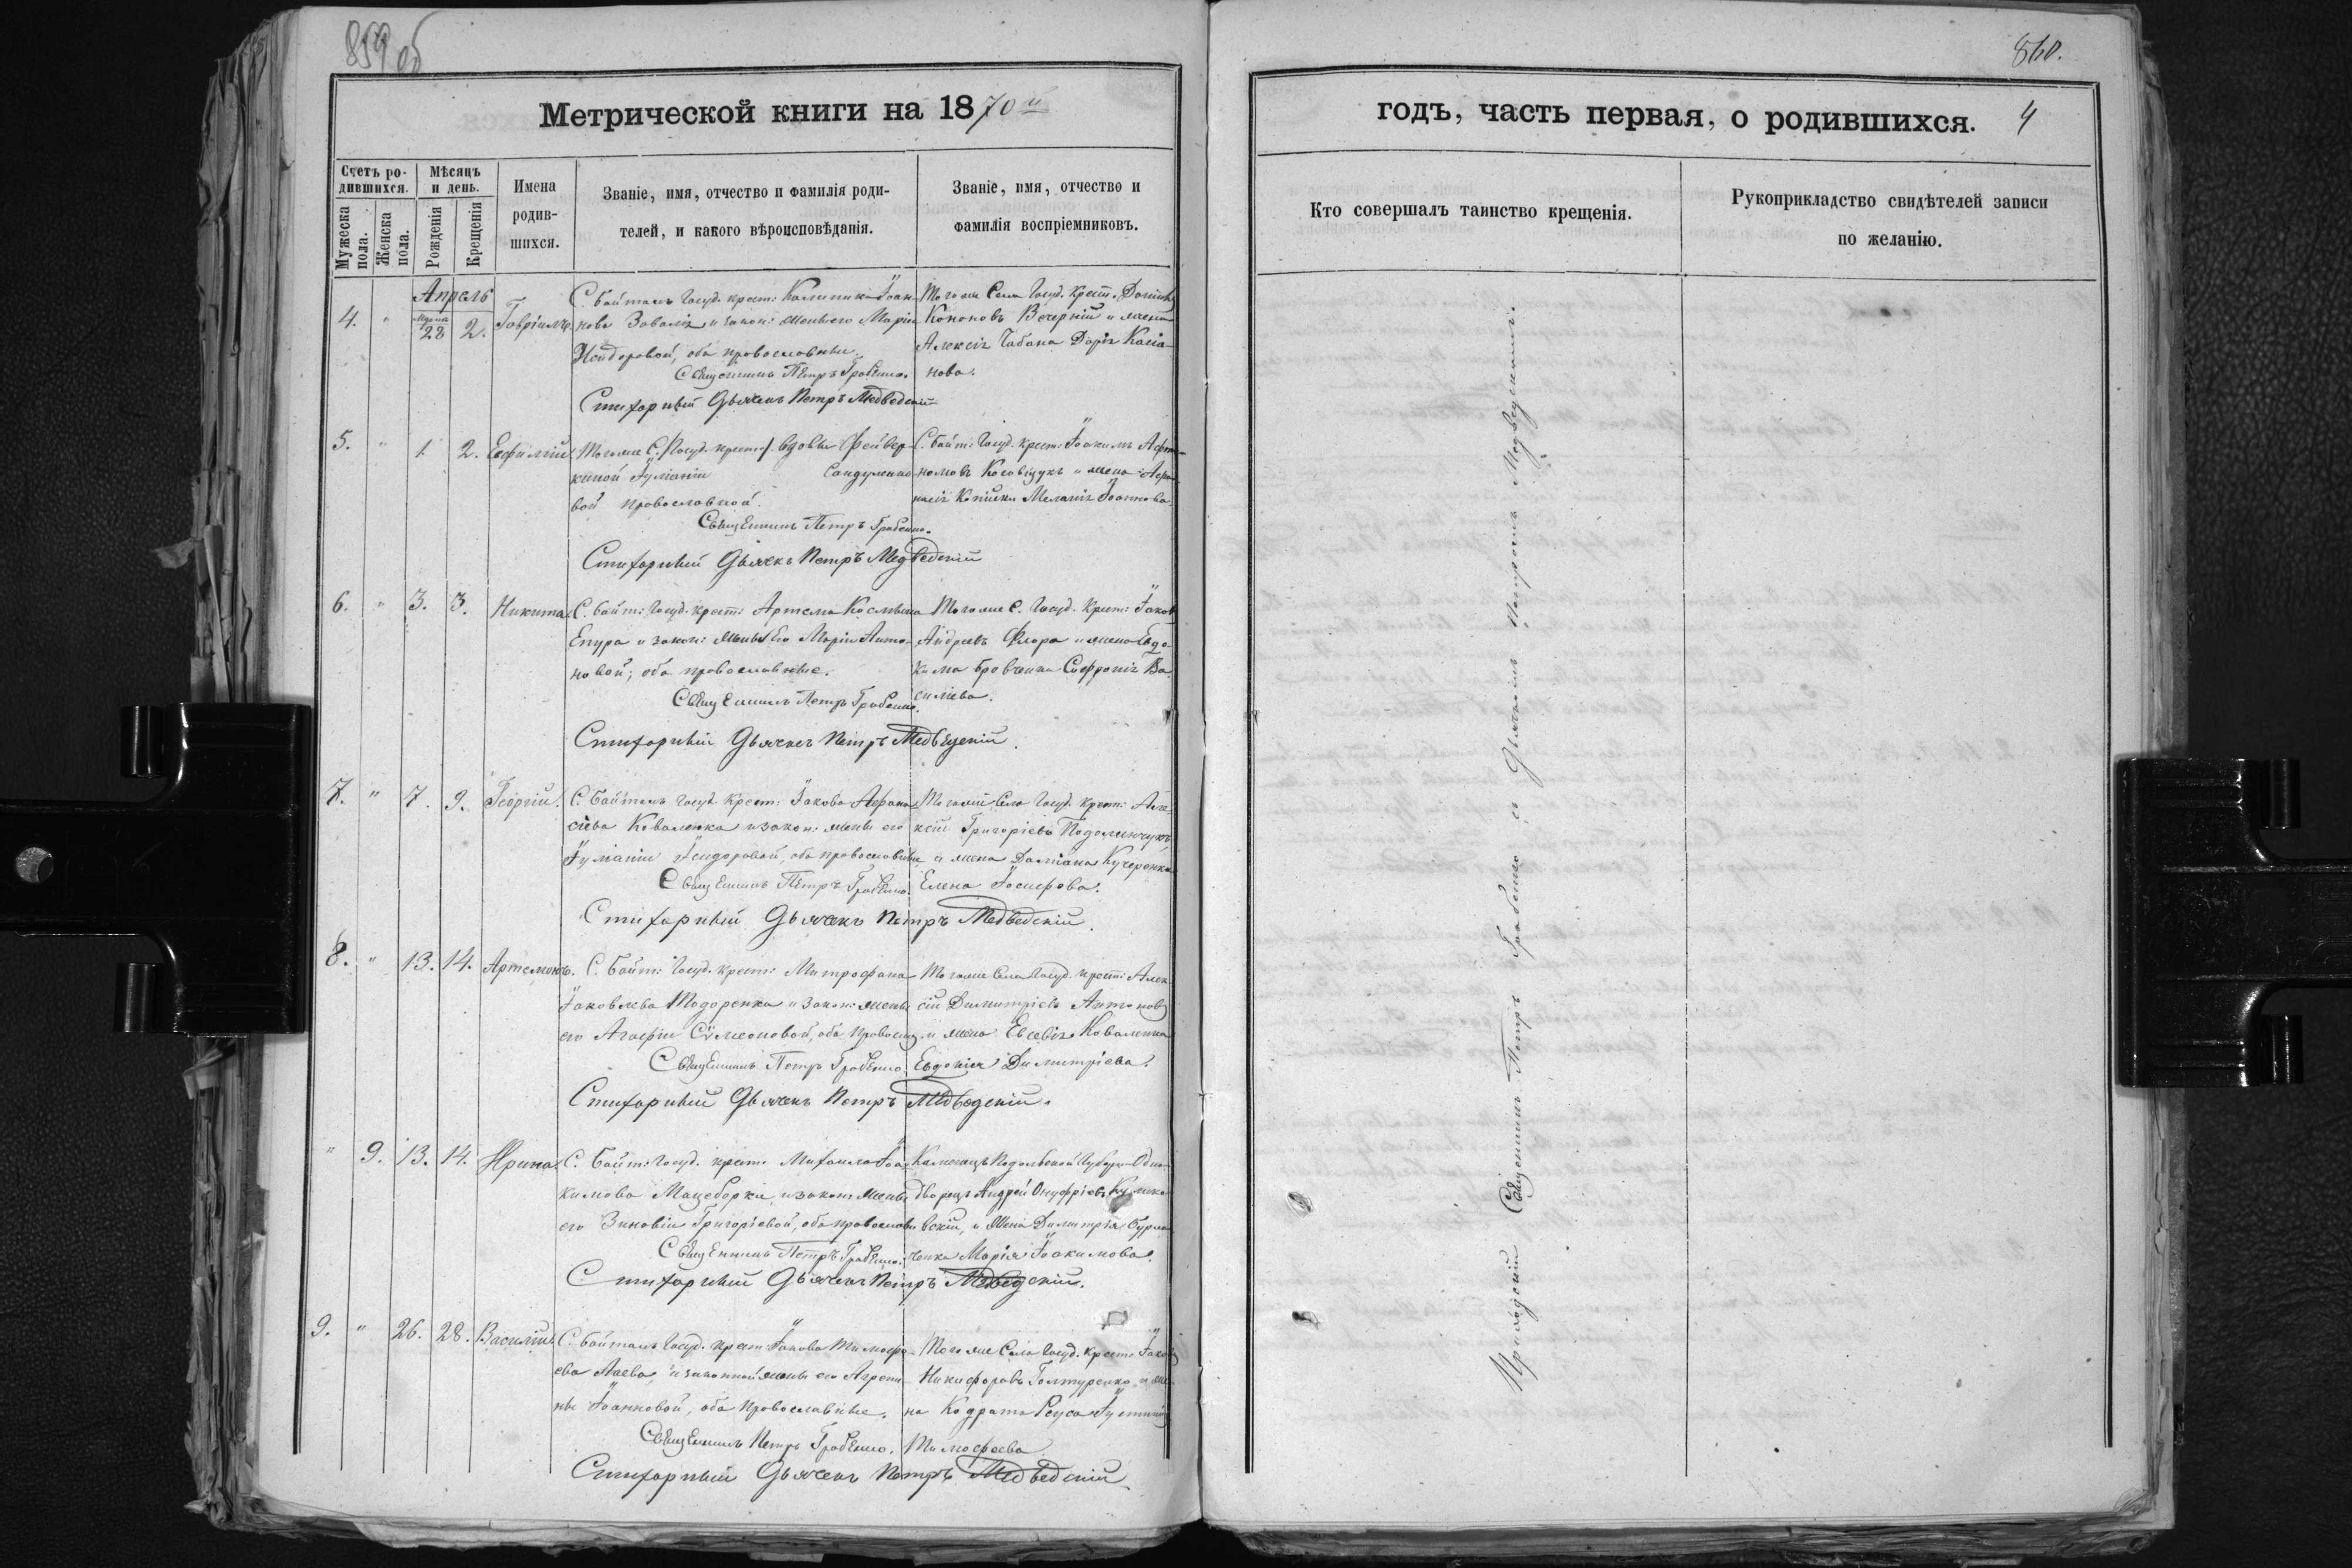 859 об
860.
Метрической книги на 1870й
годъ, часть первая, о родившихся. 4
Счетъ родившихся.
Мужеска пола.
Женска пола.
Мѣсяцъ и день.
Рожденія
Крещенія
Имена родившихся.
Званіе, имя, отчество и фамилія родителей, и какого вѣроисповѣданія.
Званіе, имя, отчество и фамилія воспріемниковъ.
Кто совершалъ таинство крещенія.
Рукоприкладство свидѣтелей записи
по желанію.
Апрель
4. " Марта 28 2. Гавріилъ
С. Байталъ Госуд. крест: Калиника Іоан-
нова Завалія и закон: жены его Маріи
Исидоровой, оба православные.
Священникъ Петръ Грабенко.
Стихарный Дьячекъ Петръ Медведскій
Того же Села Госуд. Крест.
Кононовъ Вечерній и жена
Алексія Чабана Дарія Касіа-
нова.
5. " 1. 2. Евфимій
Того же С. Госуд. крест: вдовы
Іуліаніи Сандуленко-
вой православной.
Священникъ Петръ Грабенко.
Стихарный Дьячекъ Петръ Медведскій
С. Байт: Госуд. крест: Іоакимъ
и жена Афа-
насія Меланія Іоаннова.
6. " 3. 3. Никита
С. Байт: Госуд. крест: Артема Космина
Епура и закон: жены его Маріи Анто-
новой; оба православные.
Священникъ Петръ Грабенко.
Стихарный Дьячекъ Петръ Медведскій.
Того же С. Госуд. Крест: Іаковъ
Андреевъ Флора и жена Евдо-
кима Бровченка Софронія Ва-
силіева.
7. " 7. 9. Георгій.
С. Байталъ Госуд. Крест: Іакова Афана-
сіева Коваленка и закон: жены его
Іуліаніи Исидоровой, оба православные
Священникъ Петръ Грабенко.
Стихарный Дьячекъ Петръ Медведскій.
Того же Села Госуд. крест: Але-
ксій Григоріевъ Подолинчукъ
и жена Даміана Кучеренка
Елена Іосифова.
8. " 13. 14. Артемонъ.
С. Байт: Госуд. крест: Митрофана
Іаковлева Тодоренка и закон: жены
его Агафіи Сѵмеоновой, оба правосл.
Священникъ Петръ Грабенко.
Стихарный Дьячекъ Петръ Медведскій.
Того же Села Госуд. крест: Алек-
сій Димитріевъ Антоновъ
и жена Евсевія Коваленка
Евдокія Димитріева.
" 9. 13. 14. Ирина.
С. Байт: Госуд. крест: Михаила Іоа-
кимова Мацеборки и закон: жены
его Зиновіи Григоріевой, оба православн
Священникъ Петръ Грабенко.
Стихарный Дьячекъ Петръ Медведскій.
Каменецъ Подольской Губерн. Одно-
дворецъ Андрей Онуфріевъ Кулико-
вскій, и жена Димитрія Бурла-
ченка Марія Іоакимова.
9. " 26. 28. Василій.
С. Байталъ Госуд. крест: Іакова Тимофе-
ева и законной жены его Агрепи-
ны Іоанновой, оба Православные.
Священникъ Петръ Грабенко.
Стихарный Дьячекъ Петръ Медведскій
Того же Села Госуд. крест: Іаковъ
Никифоровъ Голтуренко и же-
на Кодрата Реуса Іустинія
Тимофеева
Приходскій Священникъ Петръ Грабенко съ Дьячкомъ Петромъ Медведскимъ.